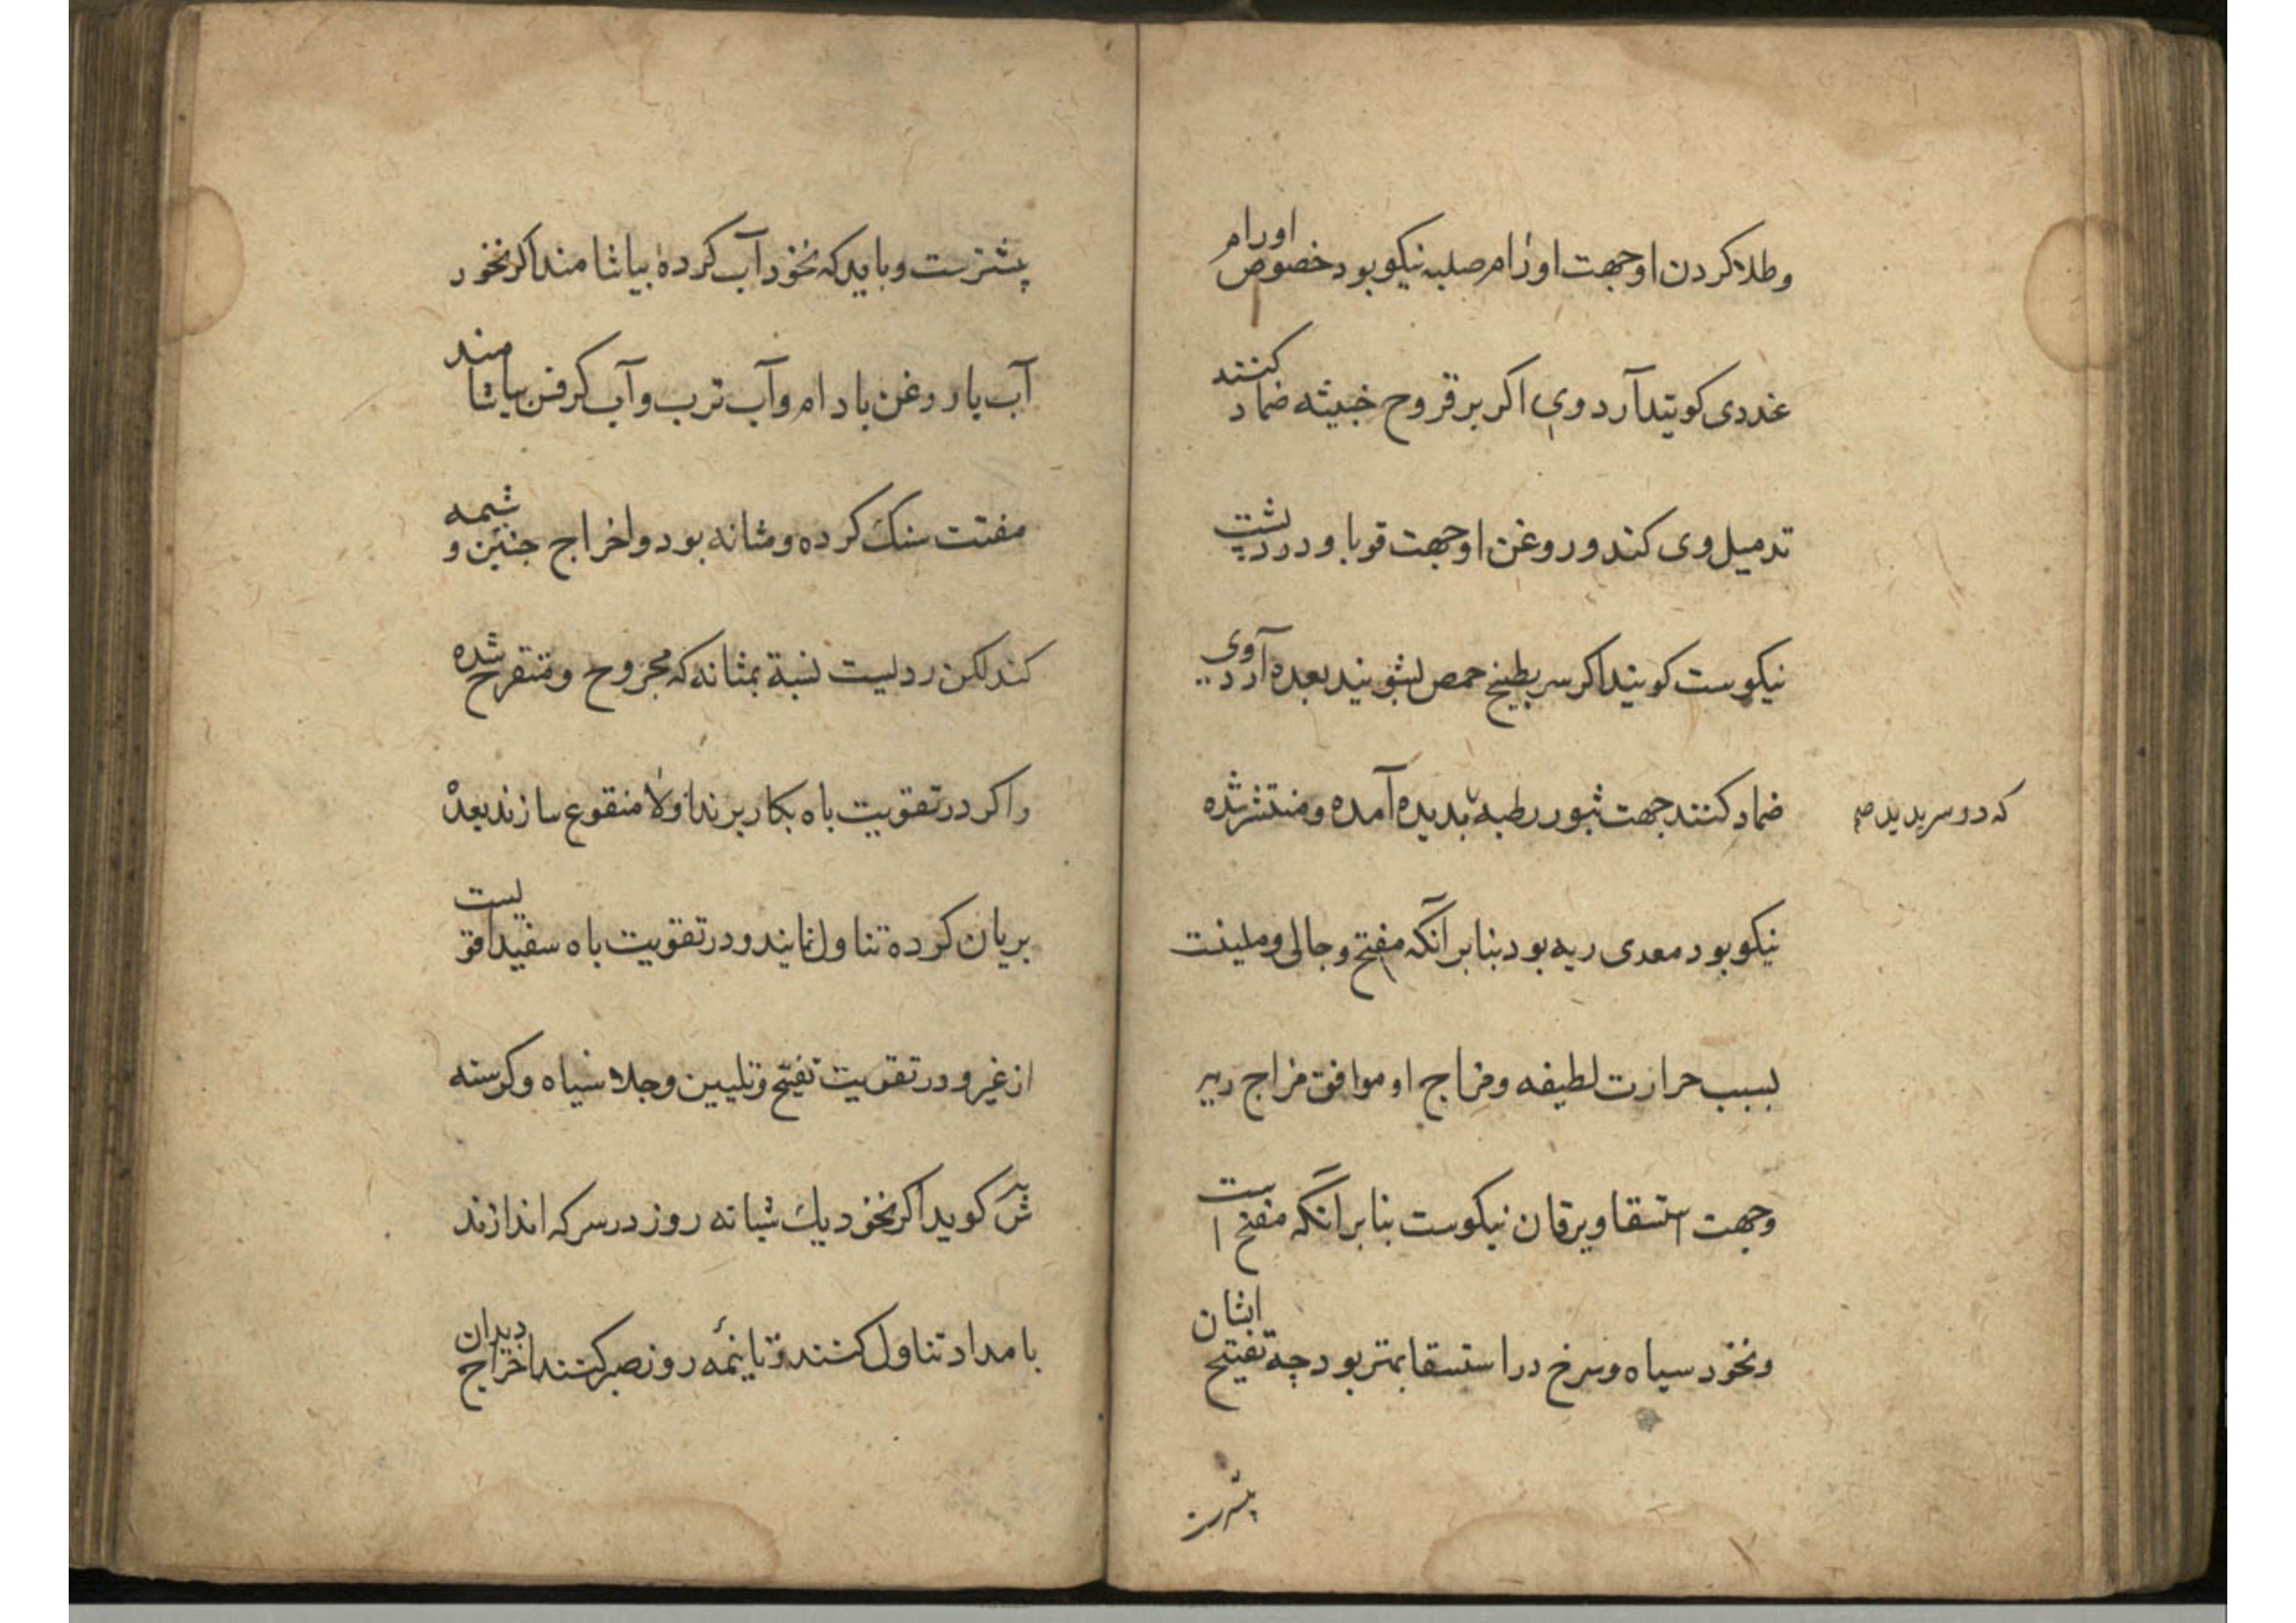 وطلا کردن او جهت اورام صلبه نیکو بود خصوص اورام
غددی کویند آرد وی اکر بر قروح خبیثه ضماد کنند
تدمیل وی کند و روغن او جهت قوبا و درد پشت
نیکوست کویند اکر سر بطبیخ حمص بشویند بعده آرد وی
ضماد کنند جهت ثبور رطبه پدیده آمده و منتشر شده
که در سر پدید
نیکو بود معدی ریه بود بنابر آنکه مفتح و جالی و ملینت
بسبب حرارت لطیفه و مزاج او موافق مزاج ریه
وجهت استسقا و یرقان نیکوست بنابر آنکه مفتح است
ونخود سیاه و سرخ در استسقا بهتر بود چه تفتیح ایشان
پیشترست
پیشترست و باید که نخود آب کرده بیاشامند اکر نخود
آب با روغن بادام و آب ترب و آب کرفس بیاشامند
مفتت سنک کرده و مثانه بود و اخراج جنین و شیمه
کند لکن ردیست نسبة بمثانه که مجروح و متقرح شده
و اکر در تقویت باه بکار برند اولا منقوع سازند بعده
بریان کرده تناول نمایند و در تقویت باه سفید اقویست
از غیر و در تقویت تفتیح و تلیین و جلا سیاه و کرسنه
کوید اکر نخود یك شبانه روز در سرکه اندازند
بامداد تناول کنند و تا نیمه روز صبر کنند اخراج دیدان